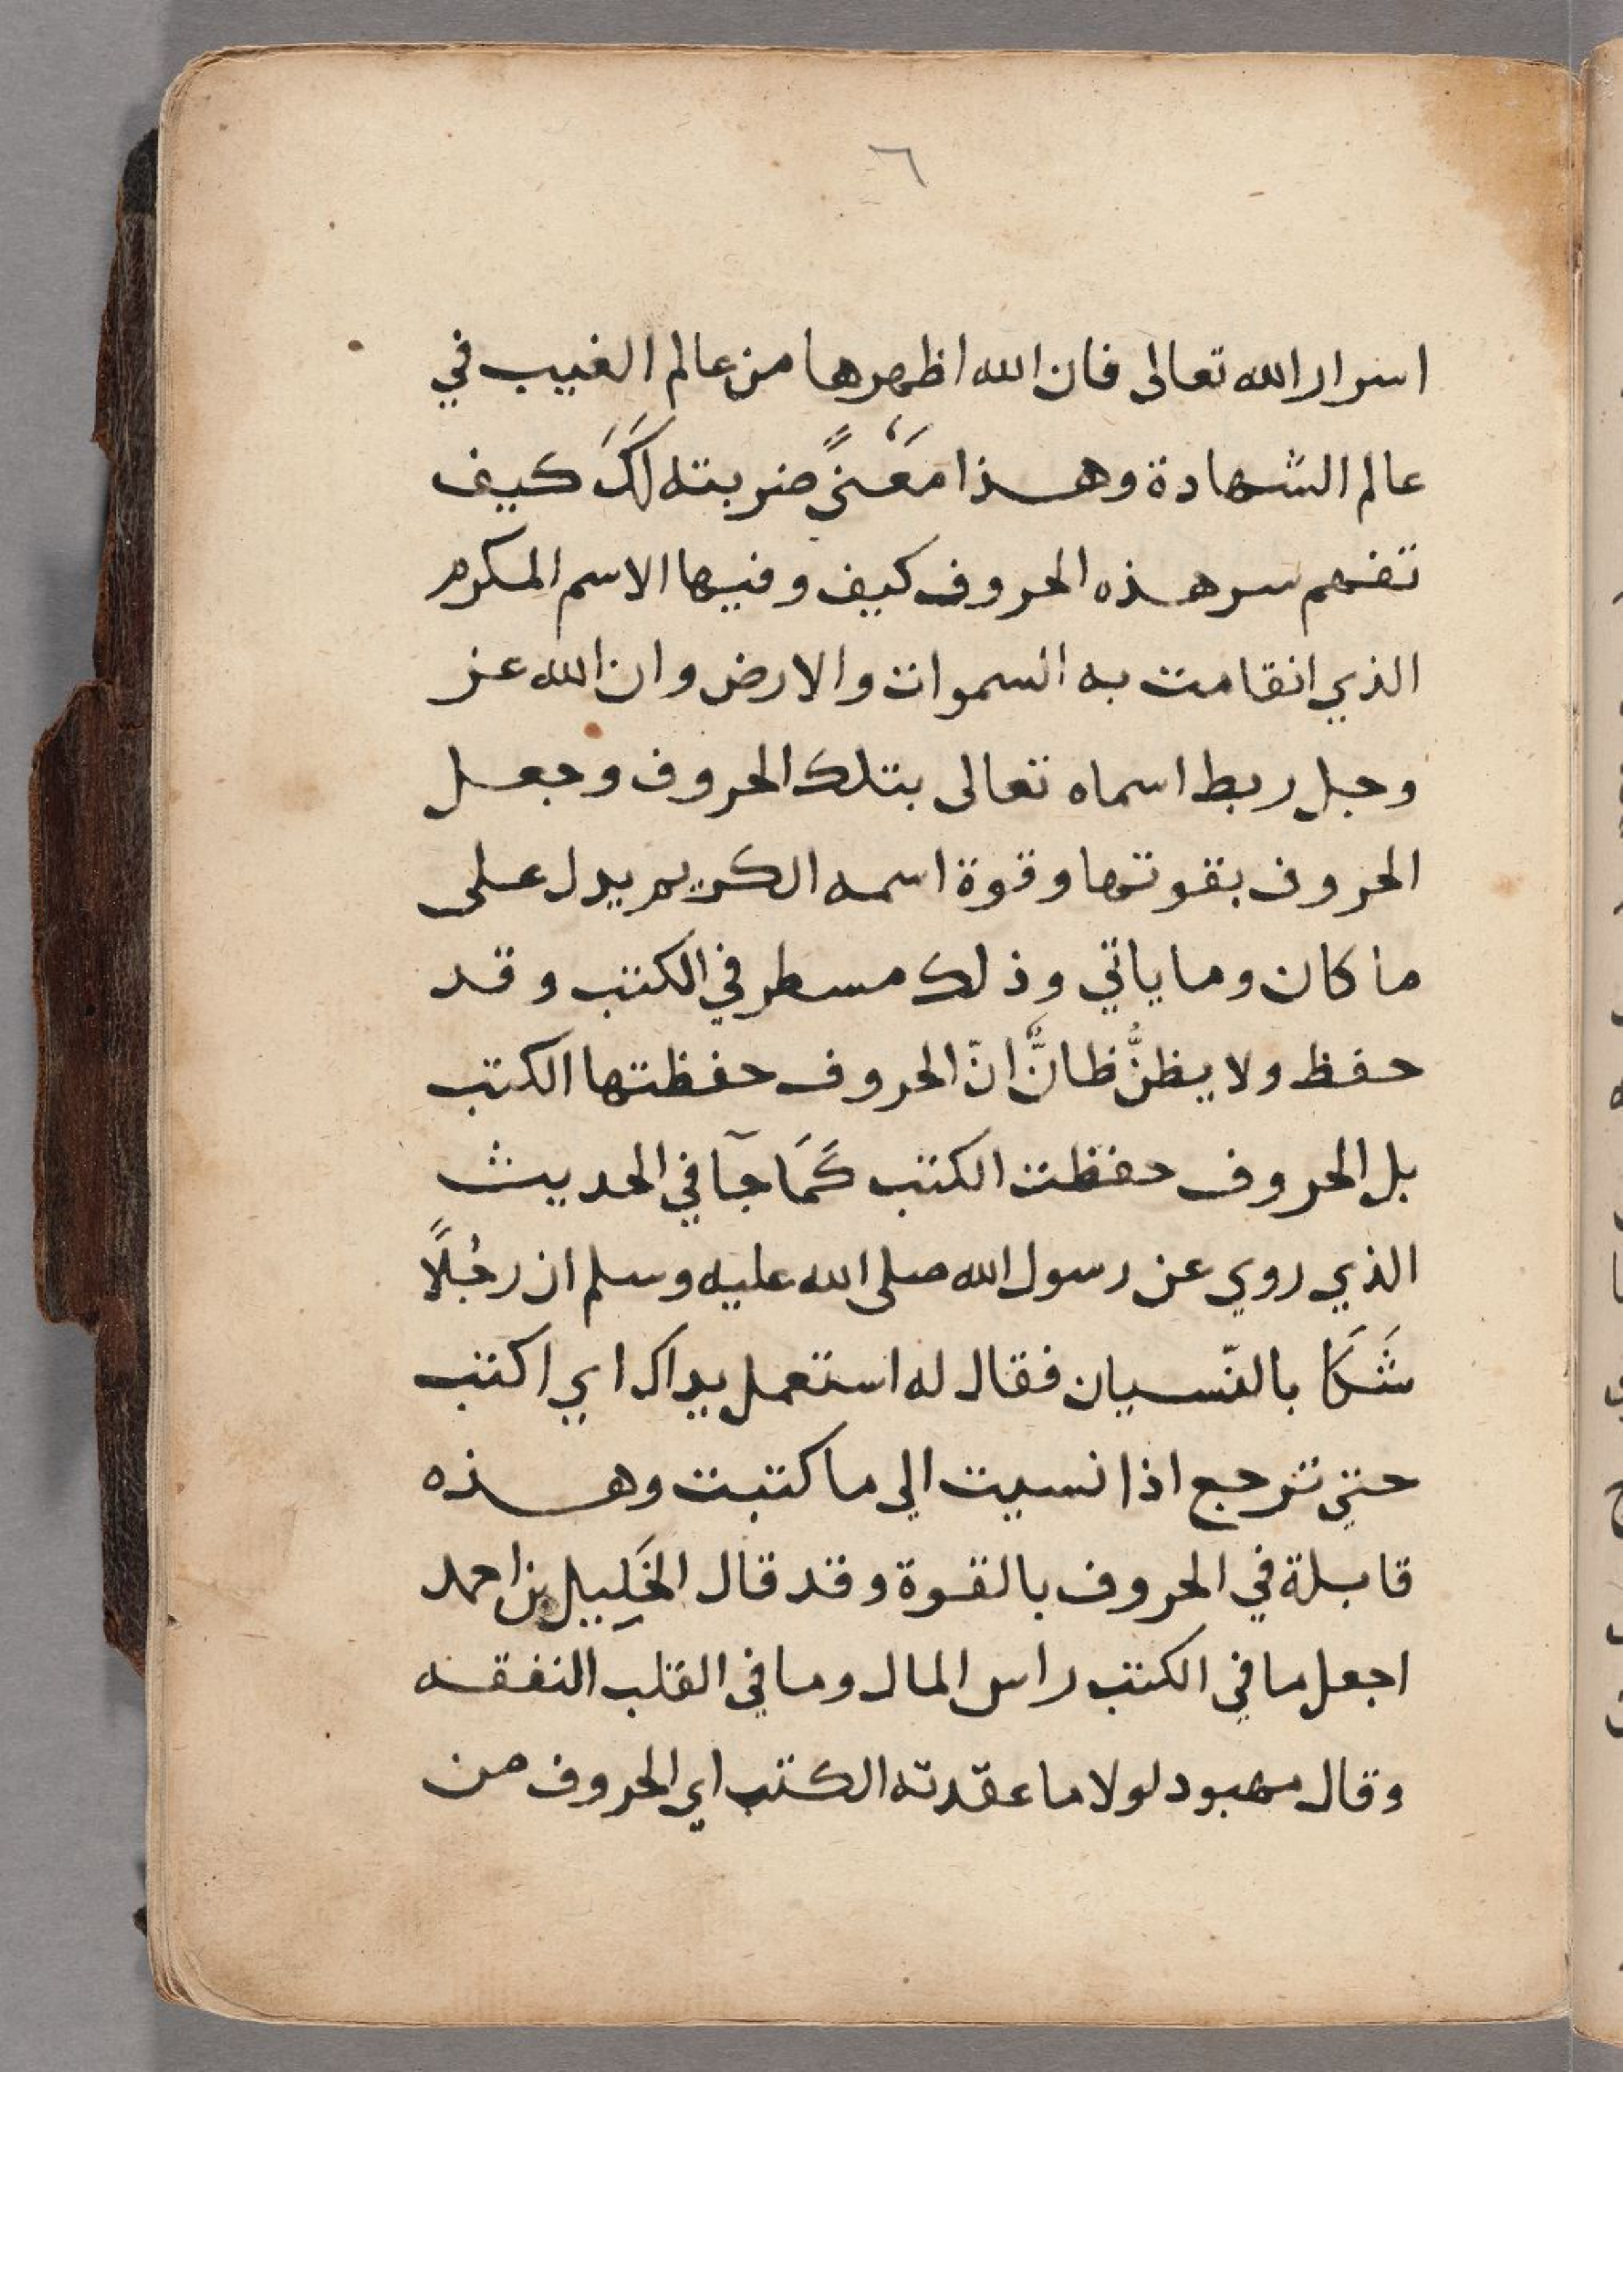 ٦
اسرار الله تعالى فان الله اظهرها من عالم الغيب في
عالم الشهادة وهذا مَعْنىً ضربته لكَ كيف
تفهم سر هذه الحروف كيف وفيها الاسم المكرم
الذي انقامت به السموات والارض وان الله عز
وجل ربط اسماه تعالى بتلك الحروف وجعل
الحروف بقوتها وقوة اسمه الكريم يدل على
ما كان وما ياتي وذلك مسطر في الكتب وقد
حفظ ولا يظنُّ ظانٌّ انّ الحروف حفظتها الكتب
بل الحروف حفظت الكتب كَمَا جآ في الحديث
الذي روي عن رسول الله صلى الله عليه وسلم ان رجُلاً
شَكَا بالنّسيان فقال له استعمل يداك اي اكتب
حتي ترجع اذا نسيت الي ما كتبت وهذه
قابلة في الحروف بالقوة وقد قال الخَلِيل بن احمد
اجعل ما في الكتب راس المال وما في القلب النفقه
وقال مهبود لولا ما عقدته الكتب اي الحروف من